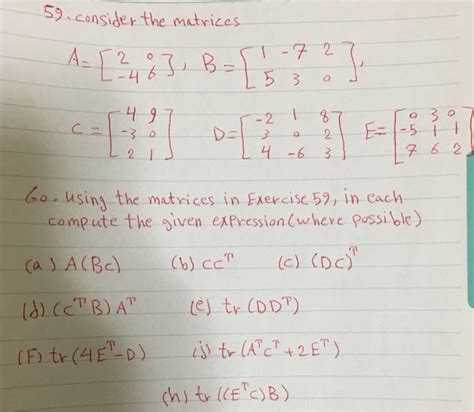 59. consider the matrices
A = [2 0; -4 6], B = [1 -7 2; 5 3 0],
C = [4 9; -3 0; 2 1] D = [-2 1 8; 3 0 2; 4 -6 3] E = [0 3 0; -5 1 1; 7 6 2]
60. using the matrices in Exercise 59, in each
compute the given expression (where possible)
(a) A(BC) (b) CC^T (c) (DC)^T
(d) (C^T B) A^T (e) tr (DD^T)
(F) tr (4E^T - D) (j) tr (A^T C^T + 2E^T)
(h) tr ((E^T C)B)